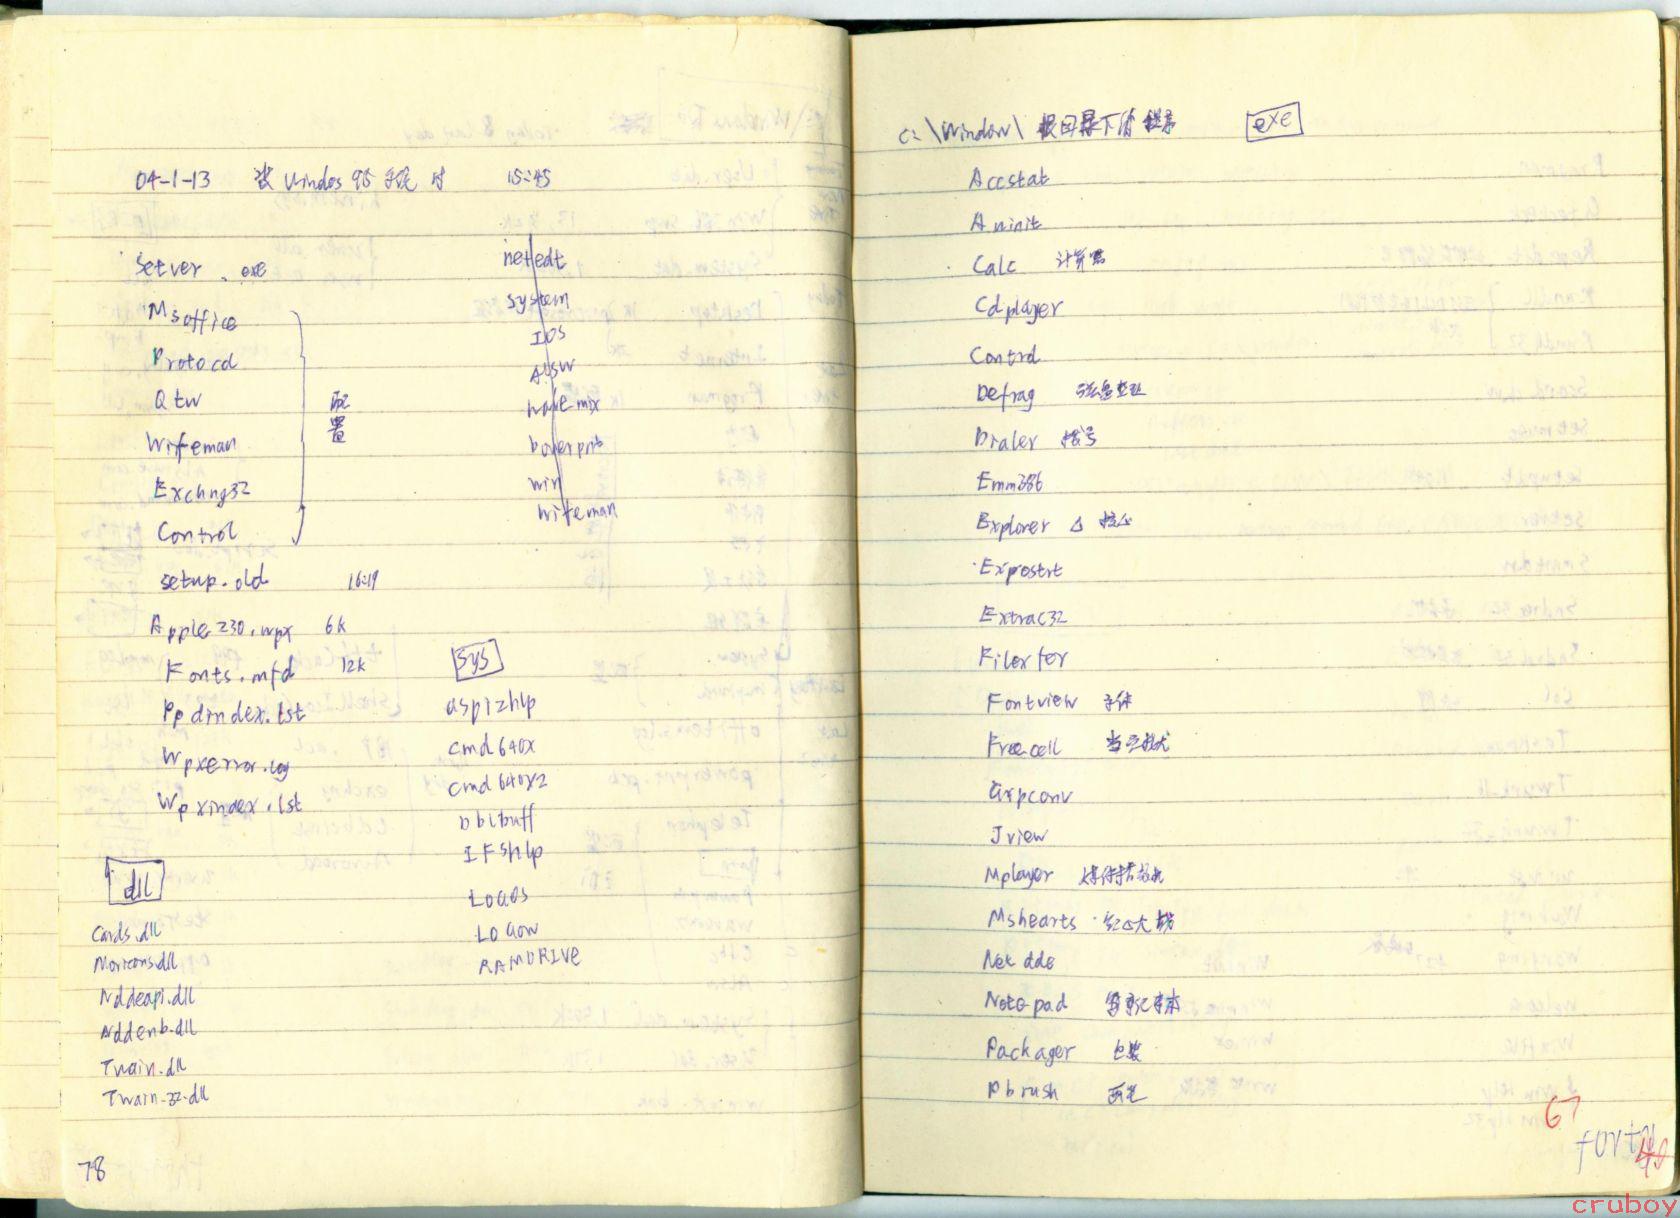 04-1-13 装 Windos 95 时 15:45
Setver .exe
Msoffice
Protocol
Qtw
Wrifeman
Exchng32
Control
配置
netedt
system
IOS
wavemix
powerprt
win
Wrifeman
setup.old 16:19
Apple230.wpx 6k
Fonts.mfd 12k
Ppdindex.lst
Wpxerror.log
Wpxindex.lst
sys
aspizhlp
cmd640x
cmd640x2
dblbuff
IFSHlp
LOGOS
LOGOW
RAMDRIVE
dll
Cards.dll
Moricons.dll
Nddeapi.dll
Nddenb.dll
Twain.dll
Twain-32.dll
78
C:\Window\ 根目录下的程序 exe
Accstat
Aninit
Calc 计算器
Cdplayer
Control
Defrag 磁盘整理
Dialer 拨号
Emm386
Explorer △ 核心
Expostrt
Extrac32
Filexfer
Fontview 字体
Freecell 当空接龙
Grpconv
Jview
Mplayer 媒体播放机
Mshearts 红心大战
Netdde
Notepad 笔记本
Packager 包装
Pbrush 画笔
67
cruboy